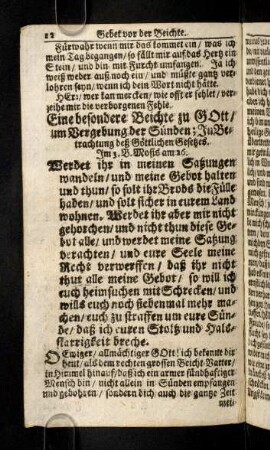 12 Gebet vor der Beichte.
Fürwahr wenn mir das kommet ein / was ich
mein Tag begangen / so fällt mir auf das Hertz ein
Stein / und bin mit Furcht umfangen. Ja ich
weiß weder auß noch ein / und müste gantz ver-
lohren seyn / wenn ich dein Wort nicht hätte.
HErr / wer kan mercken / wie offt er fehlet / ver-
zeihe mir die verborgenen Fehle.
Eine besondere Beichte zu GOtt /
um Vergebung der Sünden; In Be-
trachtung deß Göttlichen Gesetzes.
Im 3. B. Mosis am 26.
Werdet ihr in meinen Satzungen
wandeln / und meine Gebot halten
und thun / so solt ihr Brods die Fülle
haben / und solt sicher in eurem Land
wohnen. Werdet ihr aber mir nicht
gehorchen / und nicht thun diese Ge-
bot alle / und werdet meine Satzung
verachten / und eure Seele meine
Recht verwerffen / daß ihr nicht
thut alle meine Gebot / so will ich
euch heimsuchen mit Schrecken / und
wills euch noch siebenmal mehr ma-
chen / euch zu straffen um eure Sün-
de / daß ich euren Stoltz und Hals-
starrigkeit breche.
O Ewiger / allmächtiger GOtt! ich bekenne dir
heut / als dem rechten grossen Beicht-Vatter /
in Himmel hinauf / daß ich ein armer sündhafftiger
Mensch bin / nicht allein in Sünden empfangen
und gebohren / sondern dich auch die gantze Zeit